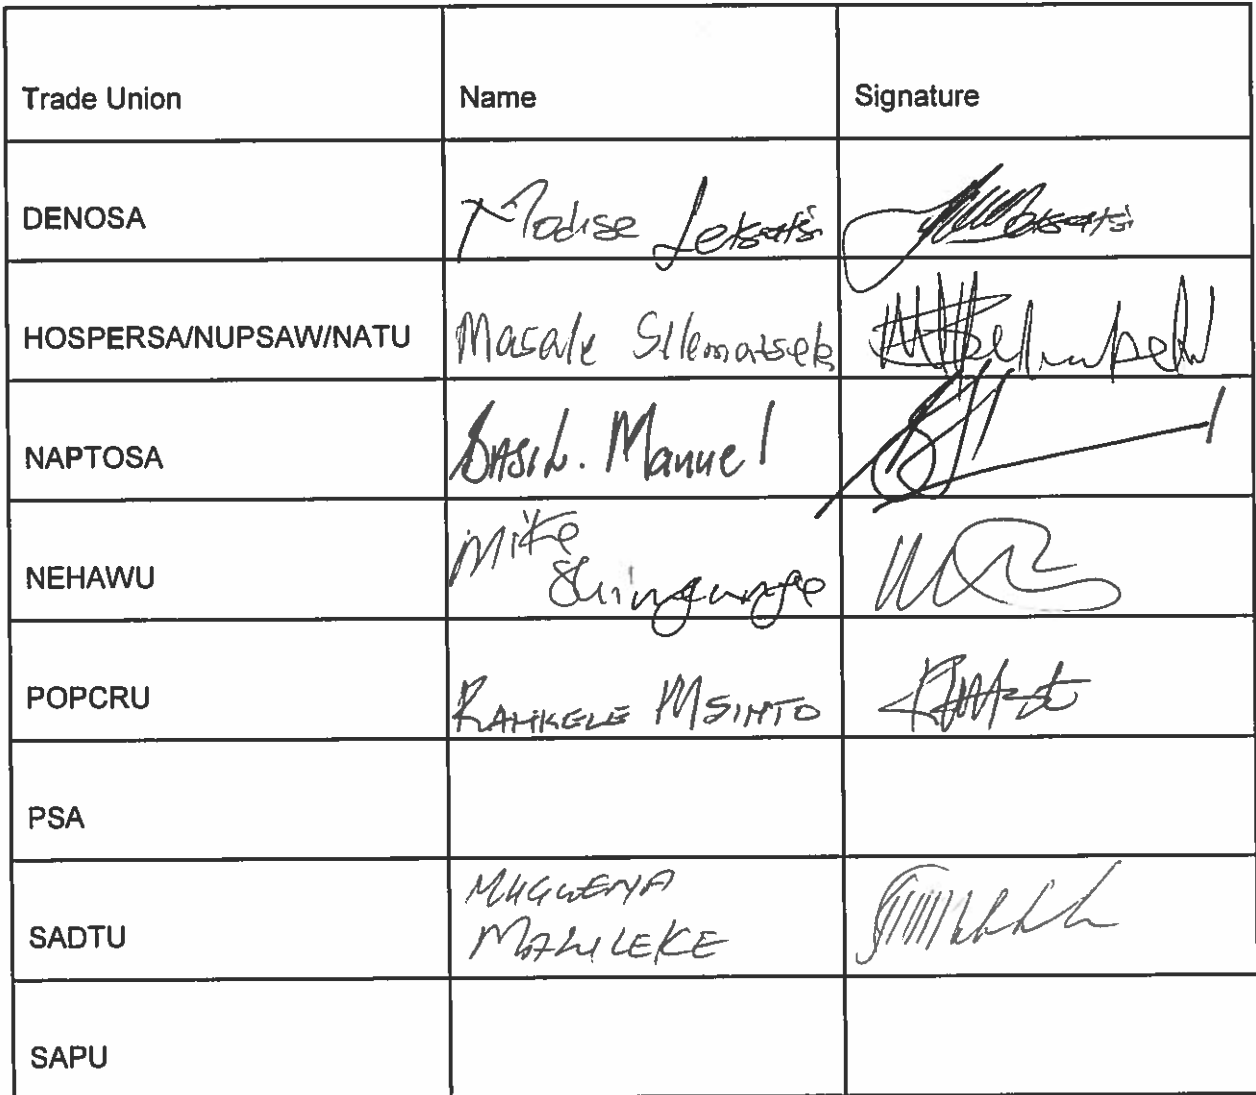 Trade Union Name Signature
DENOSA Modise Letsatsi
HOSPERSA/NUPSAW/NATU Masale
NAPTOSA BASIL. Manuel
NEHAWU Mike
POPCRU MSINTO
PSA
SADTU MUGWENA
MALULEKE
SAPU